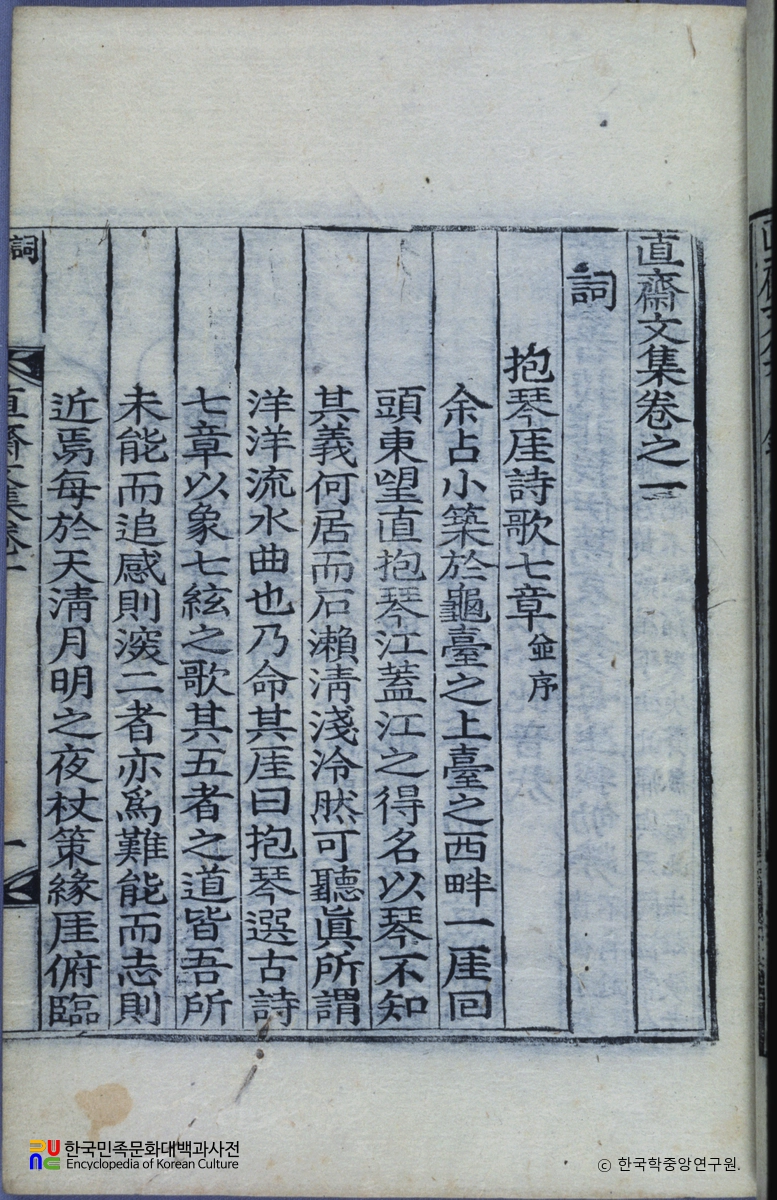 直齋文集卷之一
詞
抱琴厓詩歌七章 並序
余占小築於龜臺之上臺之西畔一厓回
頭東望直抱琴江蓋江之得名以琴不知
其義何居而石瀨淸淺泠然可聽眞所謂
洋洋流水曲也乃命其厓曰抱琴選古詩
七章以象七絃之歌其五者之道皆吾所
未能而追感則深二者亦爲難能而志則
近焉每於天淸月明之夜杖策緣厓俯臨
詞
直齋文集卷一
一
한국민족문화대백과사전
Encyclopedia of Korean Culture
ⓒ 한국학중앙연구원.